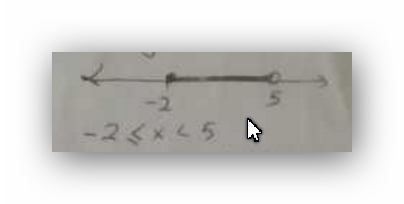 -2 5
-2 ≤ x < 5